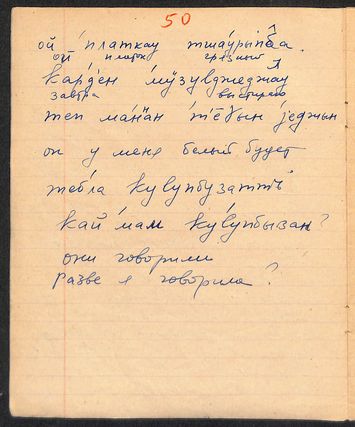 50
ой платкау тша́урыпба̂.
ой платок грязный
ка́рде́н мӱзувджеджау
завтра выстираю
теп ма́нӓн те́ɣын је́джын
он у меня белый будет
тебла кувупбузатть
кай мам ку́вупбызан?
они говорили
разве я говорила?